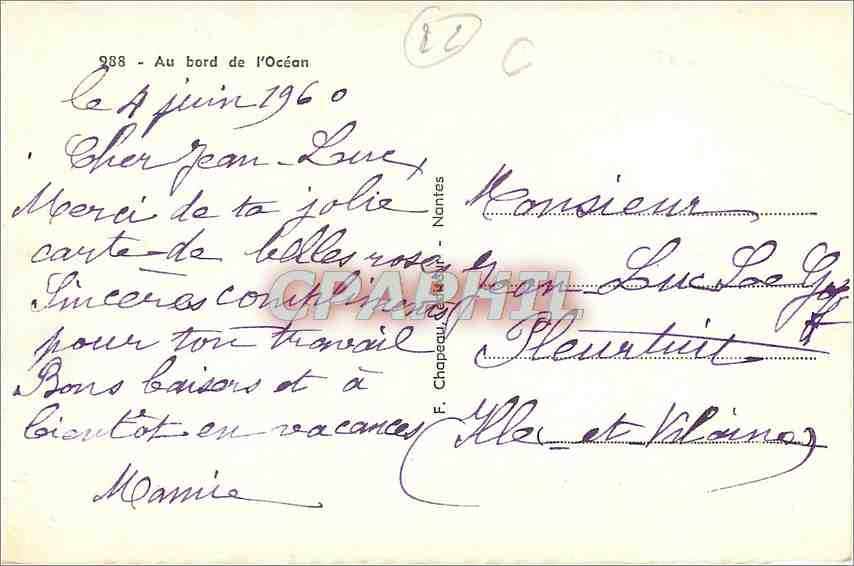 22
C
988 - Au bord de l'Océan
le 4 juin 1960
Cher Jean-Luc,
Merci de ta jolie
carte de belles roses
Sincères compliments
pour ton travail
Bons baisers et à
bientôt en vacances
Mamie
F. Chapeau, Nantes
Monsieur
Jean-Luc Le Goff
Pleurtuit
(Ille-et-Vilaine)
CPARPHIL